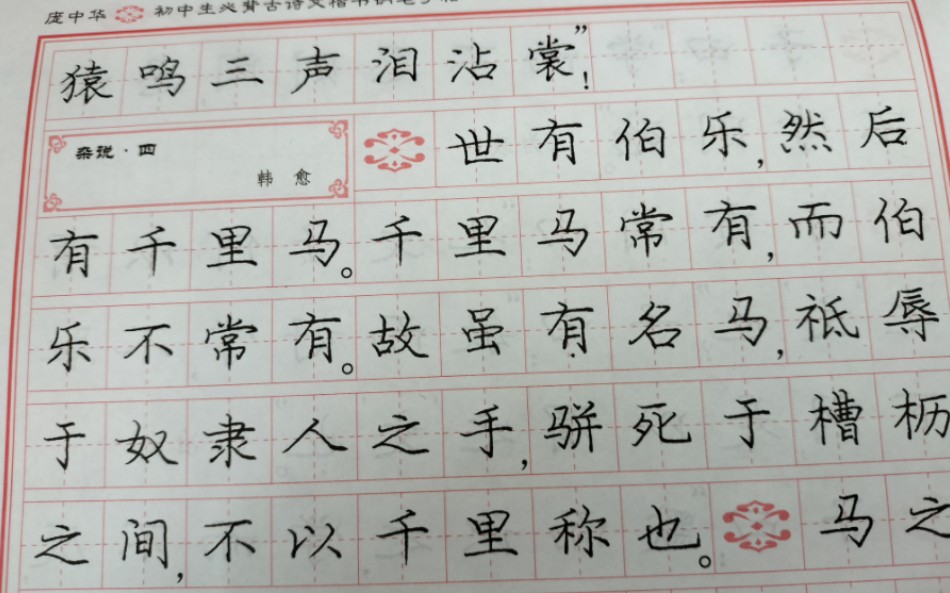 庞中华 初中生必背古诗文楷书钢笔字帖
猿鸣三声泪沾裳”!
杂说·四
韩愈
世有伯乐,然后
有千里马。千里马常有,而伯
乐不常有。故虽有名马,祗辱
于奴隶人之手,骈死于槽枥
之间,不以千里称也。马之